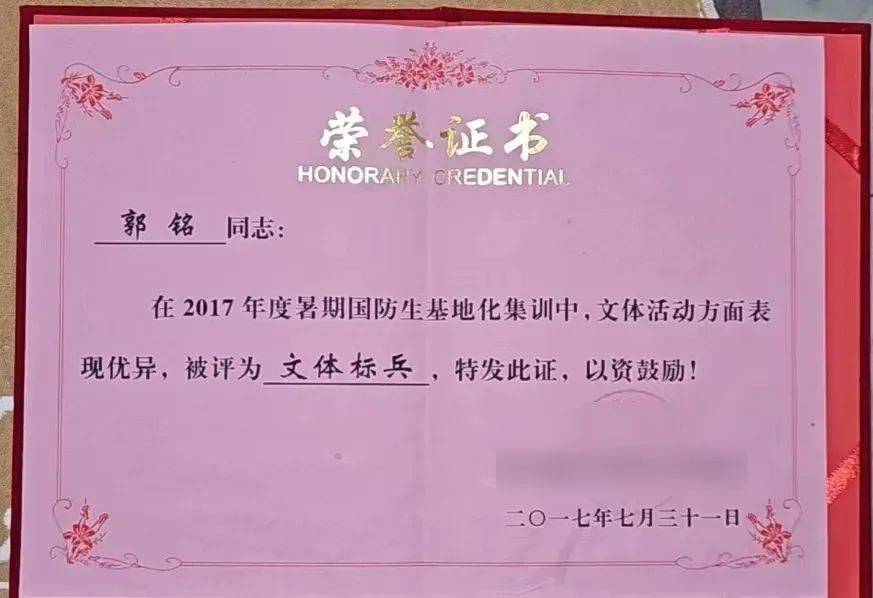 荣誉证书
HONORARY CREDENTIAL
郭铭同志：
在2017年度暑期国防生基地化集训中，文体活动方面表
现优异，被评为文体标兵，特发此证，以资鼓励！
二〇一七年七月三十一日